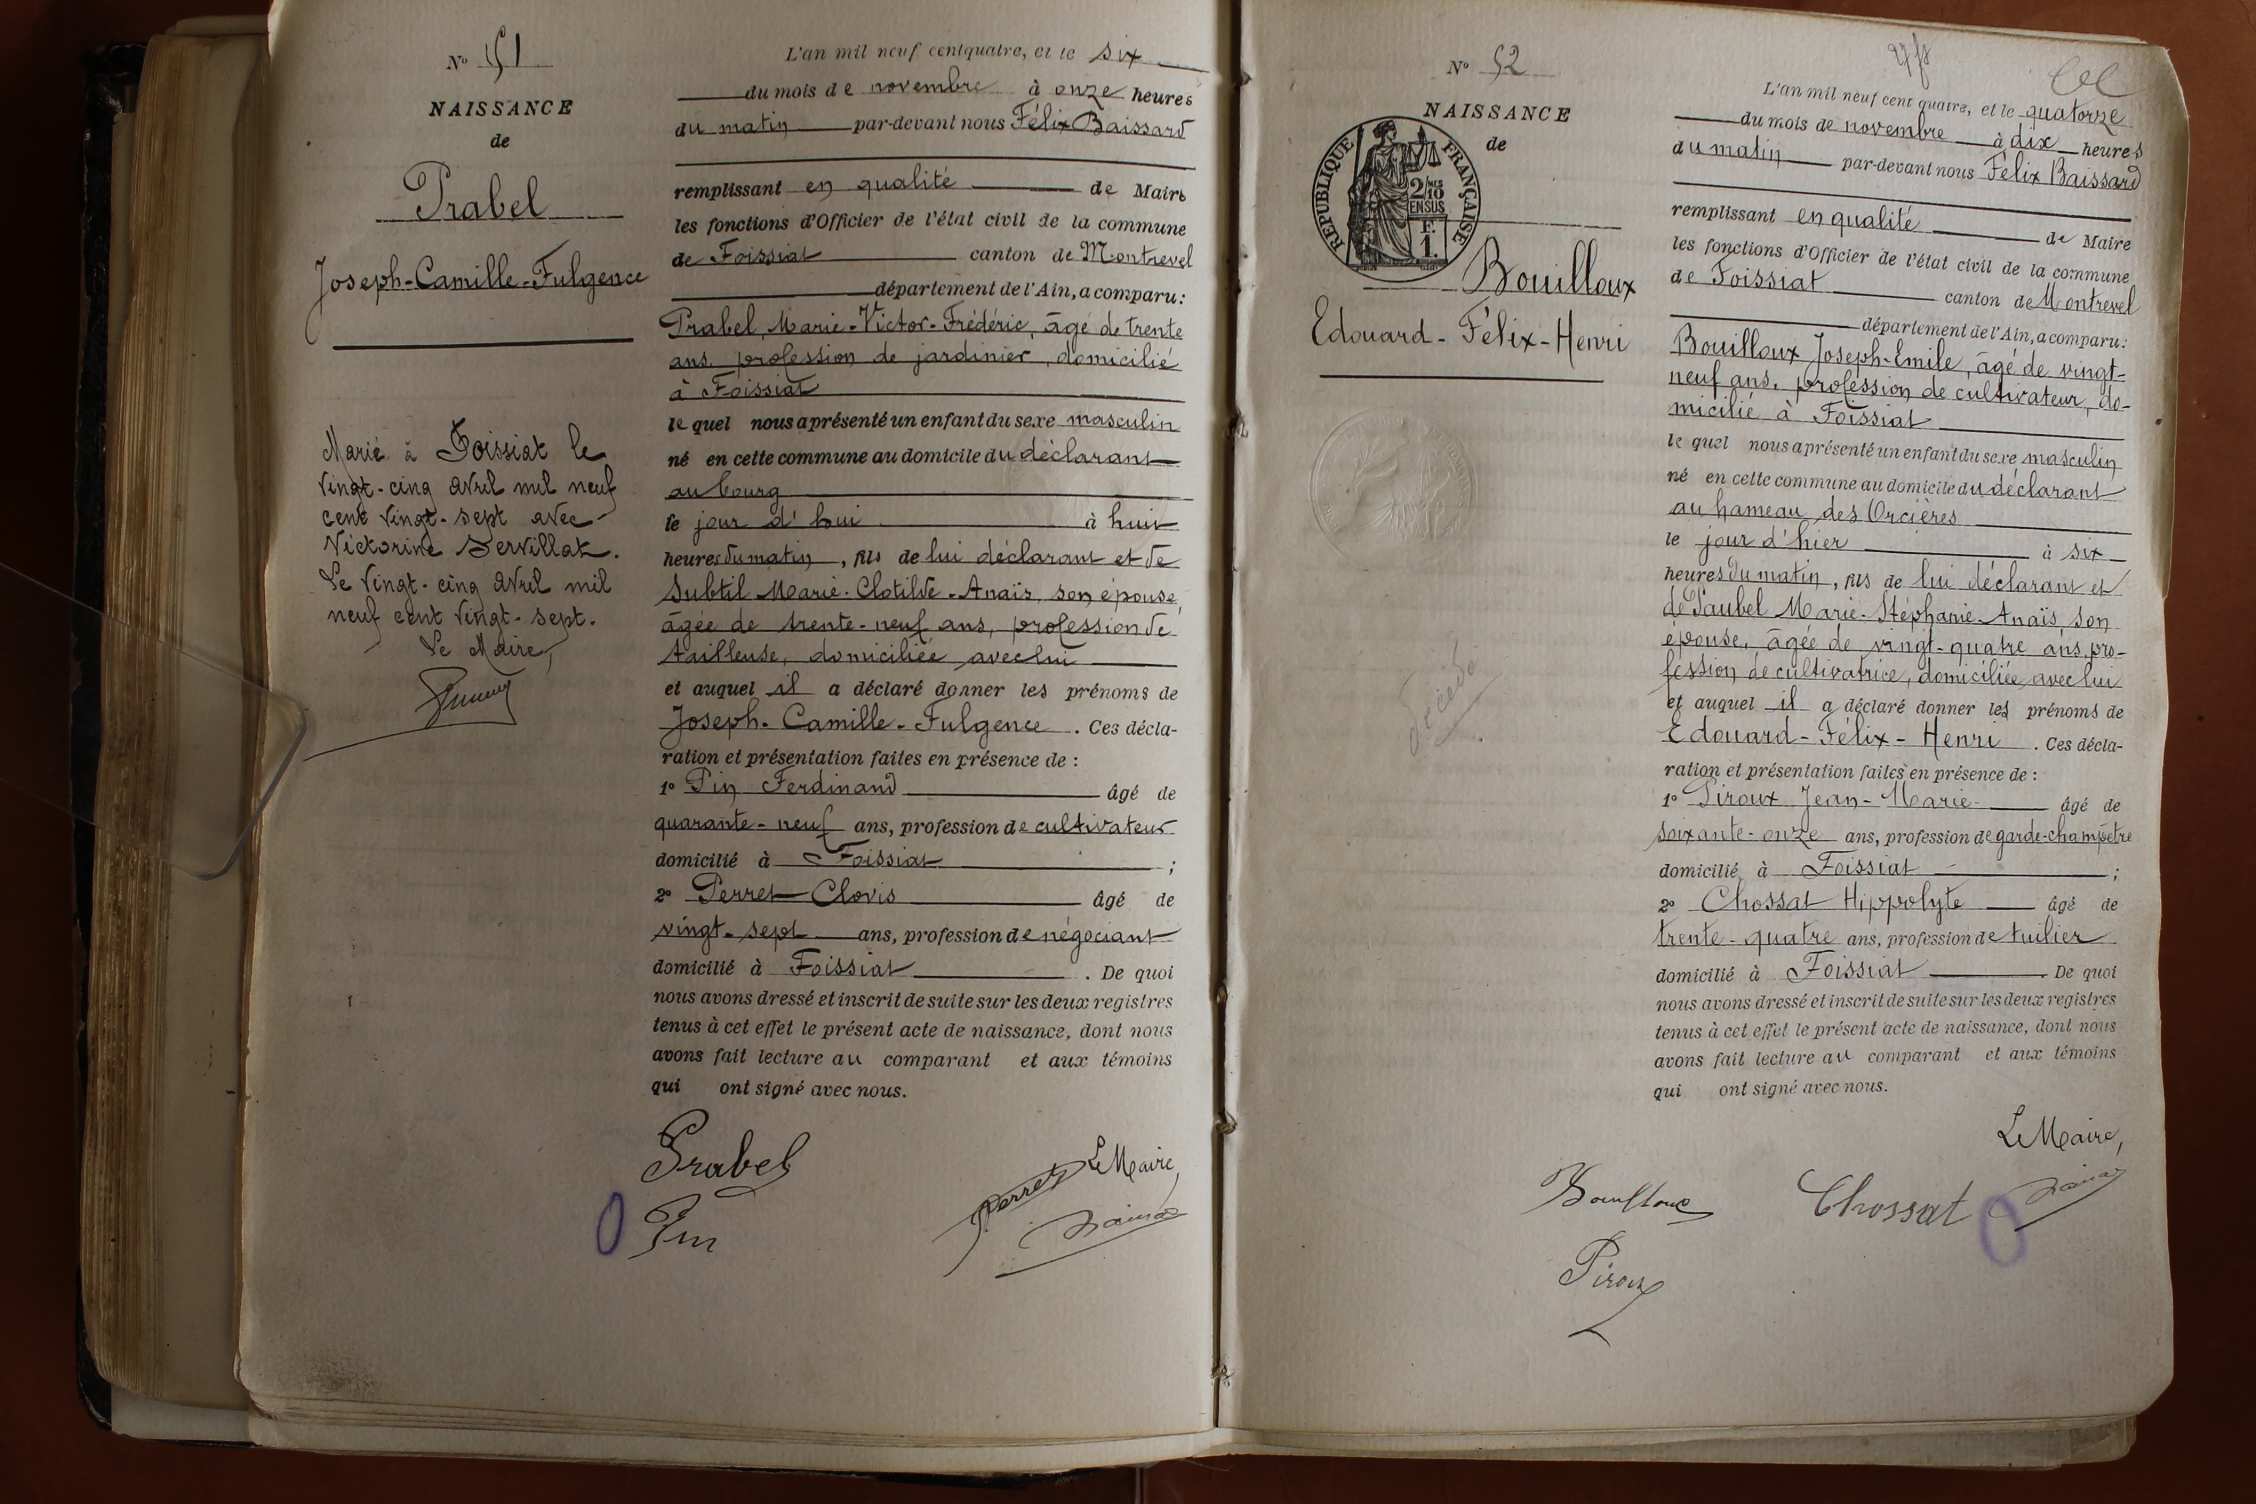 N° 51
NAISSANCE
de
Prabel
Joseph-Camille-Fulgence
Marié à Foissiat le
vingt-cinq avril mil neuf
cent vingt-sept avec
Victorine Servillat.
Le vingt-cinq avril mil
neuf cent vingt-sept.
Le Maire,
L'an mil neuf cent quatre, et le six
du mois de novembre à onze heures
du matin par-devant nous Félix Baissard
remplissant en qualité de Maire
les fonctions d'Officier de l'état civil de la commune
de Foissiat canton de Montrevel
département de l'Ain, a comparu:
Prabel, Marie-Victor-Frédéric, âgé de trente
ans, profession de jardinier, domicilié
à Foissiat
le quel nous a présenté un enfant du sexe masculin
né en cette commune au domicile du déclarant
au bourg
le jour d'hui à huit
heures du matin, fils de lui déclarant et de
Subtil Marie-Clotilde-Anaïs, son épouse,
âgée de trente-neuf ans, profession de
tailleuse, domiciliée avec lui
et auquel il a déclaré donner les prénoms de
Joseph-Camille-Fulgence. Ces décla-
ration et présentation faites en présence de :
1° Pin Ferdinand âgé de
quarante-neuf ans, profession de cultivateur
domicilié à Foissiat ;
2° Perret Clovis âgé de
vingt-sept ans, profession de négociant
domicilié à Foissiat. De quoi
nous avons dressé et inscrit de suite sur les deux registres
tenus à cet effet le présent acte de naissance, dont nous
avons fait lecture au comparant et aux témoins
qui ont signé avec nous.
Prabel
Le Maire,
Perret
Pin
Baissard
N° 52
NAISSANCE
de
RÉPUBLIQUE FRANÇAISE
2/10 MES
EN SUS
F.
1.
Bouilloux
Edouard-Félix-Henri
décédé
L'an mil neuf cent quatre, et le quatorze
du mois de novembre à dix heures
du matin par-devant nous Félix Baissard
remplissant en qualité de Maire
les fonctions d'Officier de l'état civil de la commune
de Foissiat canton de Montrevel
département de l'Ain, a comparu:
Bouilloux Joseph-Emile, âgé de vingt-
neuf ans, profession de cultivateur, do-
micilié à Foissiat
le quel nous a présenté un enfant du sexe masculin
né en cette commune au domicile du déclarant
au hameau des Orcières
le jour d'hier à six
heures du matin, fils de lui déclarant et
de Paubel Marie-Stéphanie-Anaïs son
épouse, âgée de vingt-quatre ans, pro-
fession de cultivatrice, domiciliée avec lui
et auquel il a déclaré donner les prénoms de
Edouard-Félix-Henri. Ces décla-
ration et présentation faites en présence de :
1° Piroux Jean-Marie âgé de
soixante-onze ans, profession de garde-champêtre
domicilié à Foissiat ;
2° Chossat Hippolyte âgé de
trente-quatre ans, profession de tuilier
domicilié à Foissiat. De quoi
nous avons dressé et inscrit de suite sur les deux registres
tenus à cet effet le présent acte de naissance, dont nous
avons fait lecture au comparant et aux témoins
qui ont signé avec nous.
Le Maire,
Bouilloux
Chossat
Baissard
Piroux